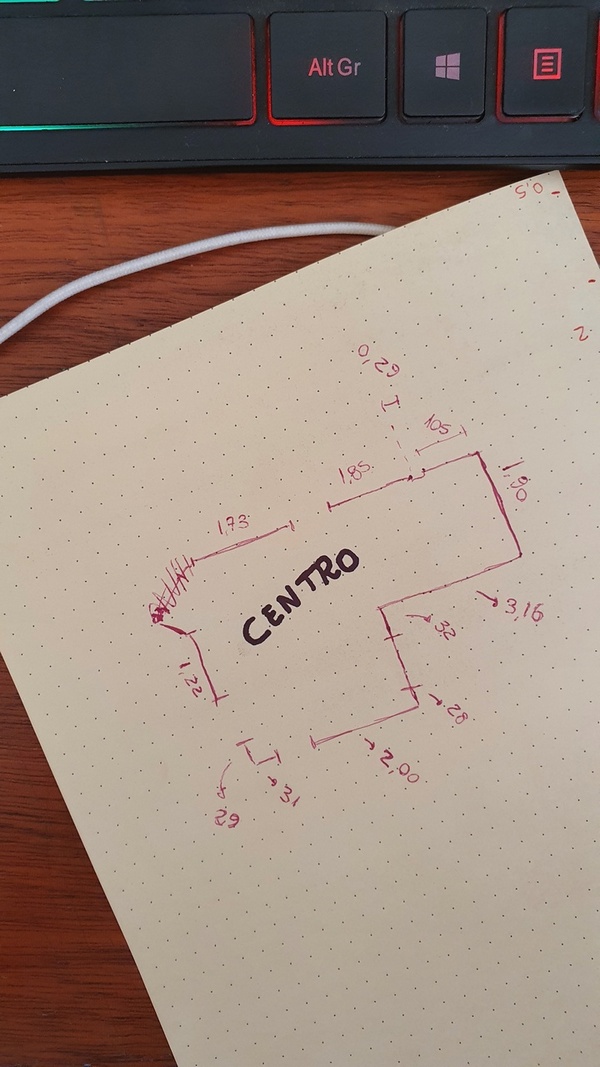 Alt Gr
0,5
2
0,29
105
1,85
1,90
1,73
CENTRO
3,16
32
1,22
28
2,00
31
29